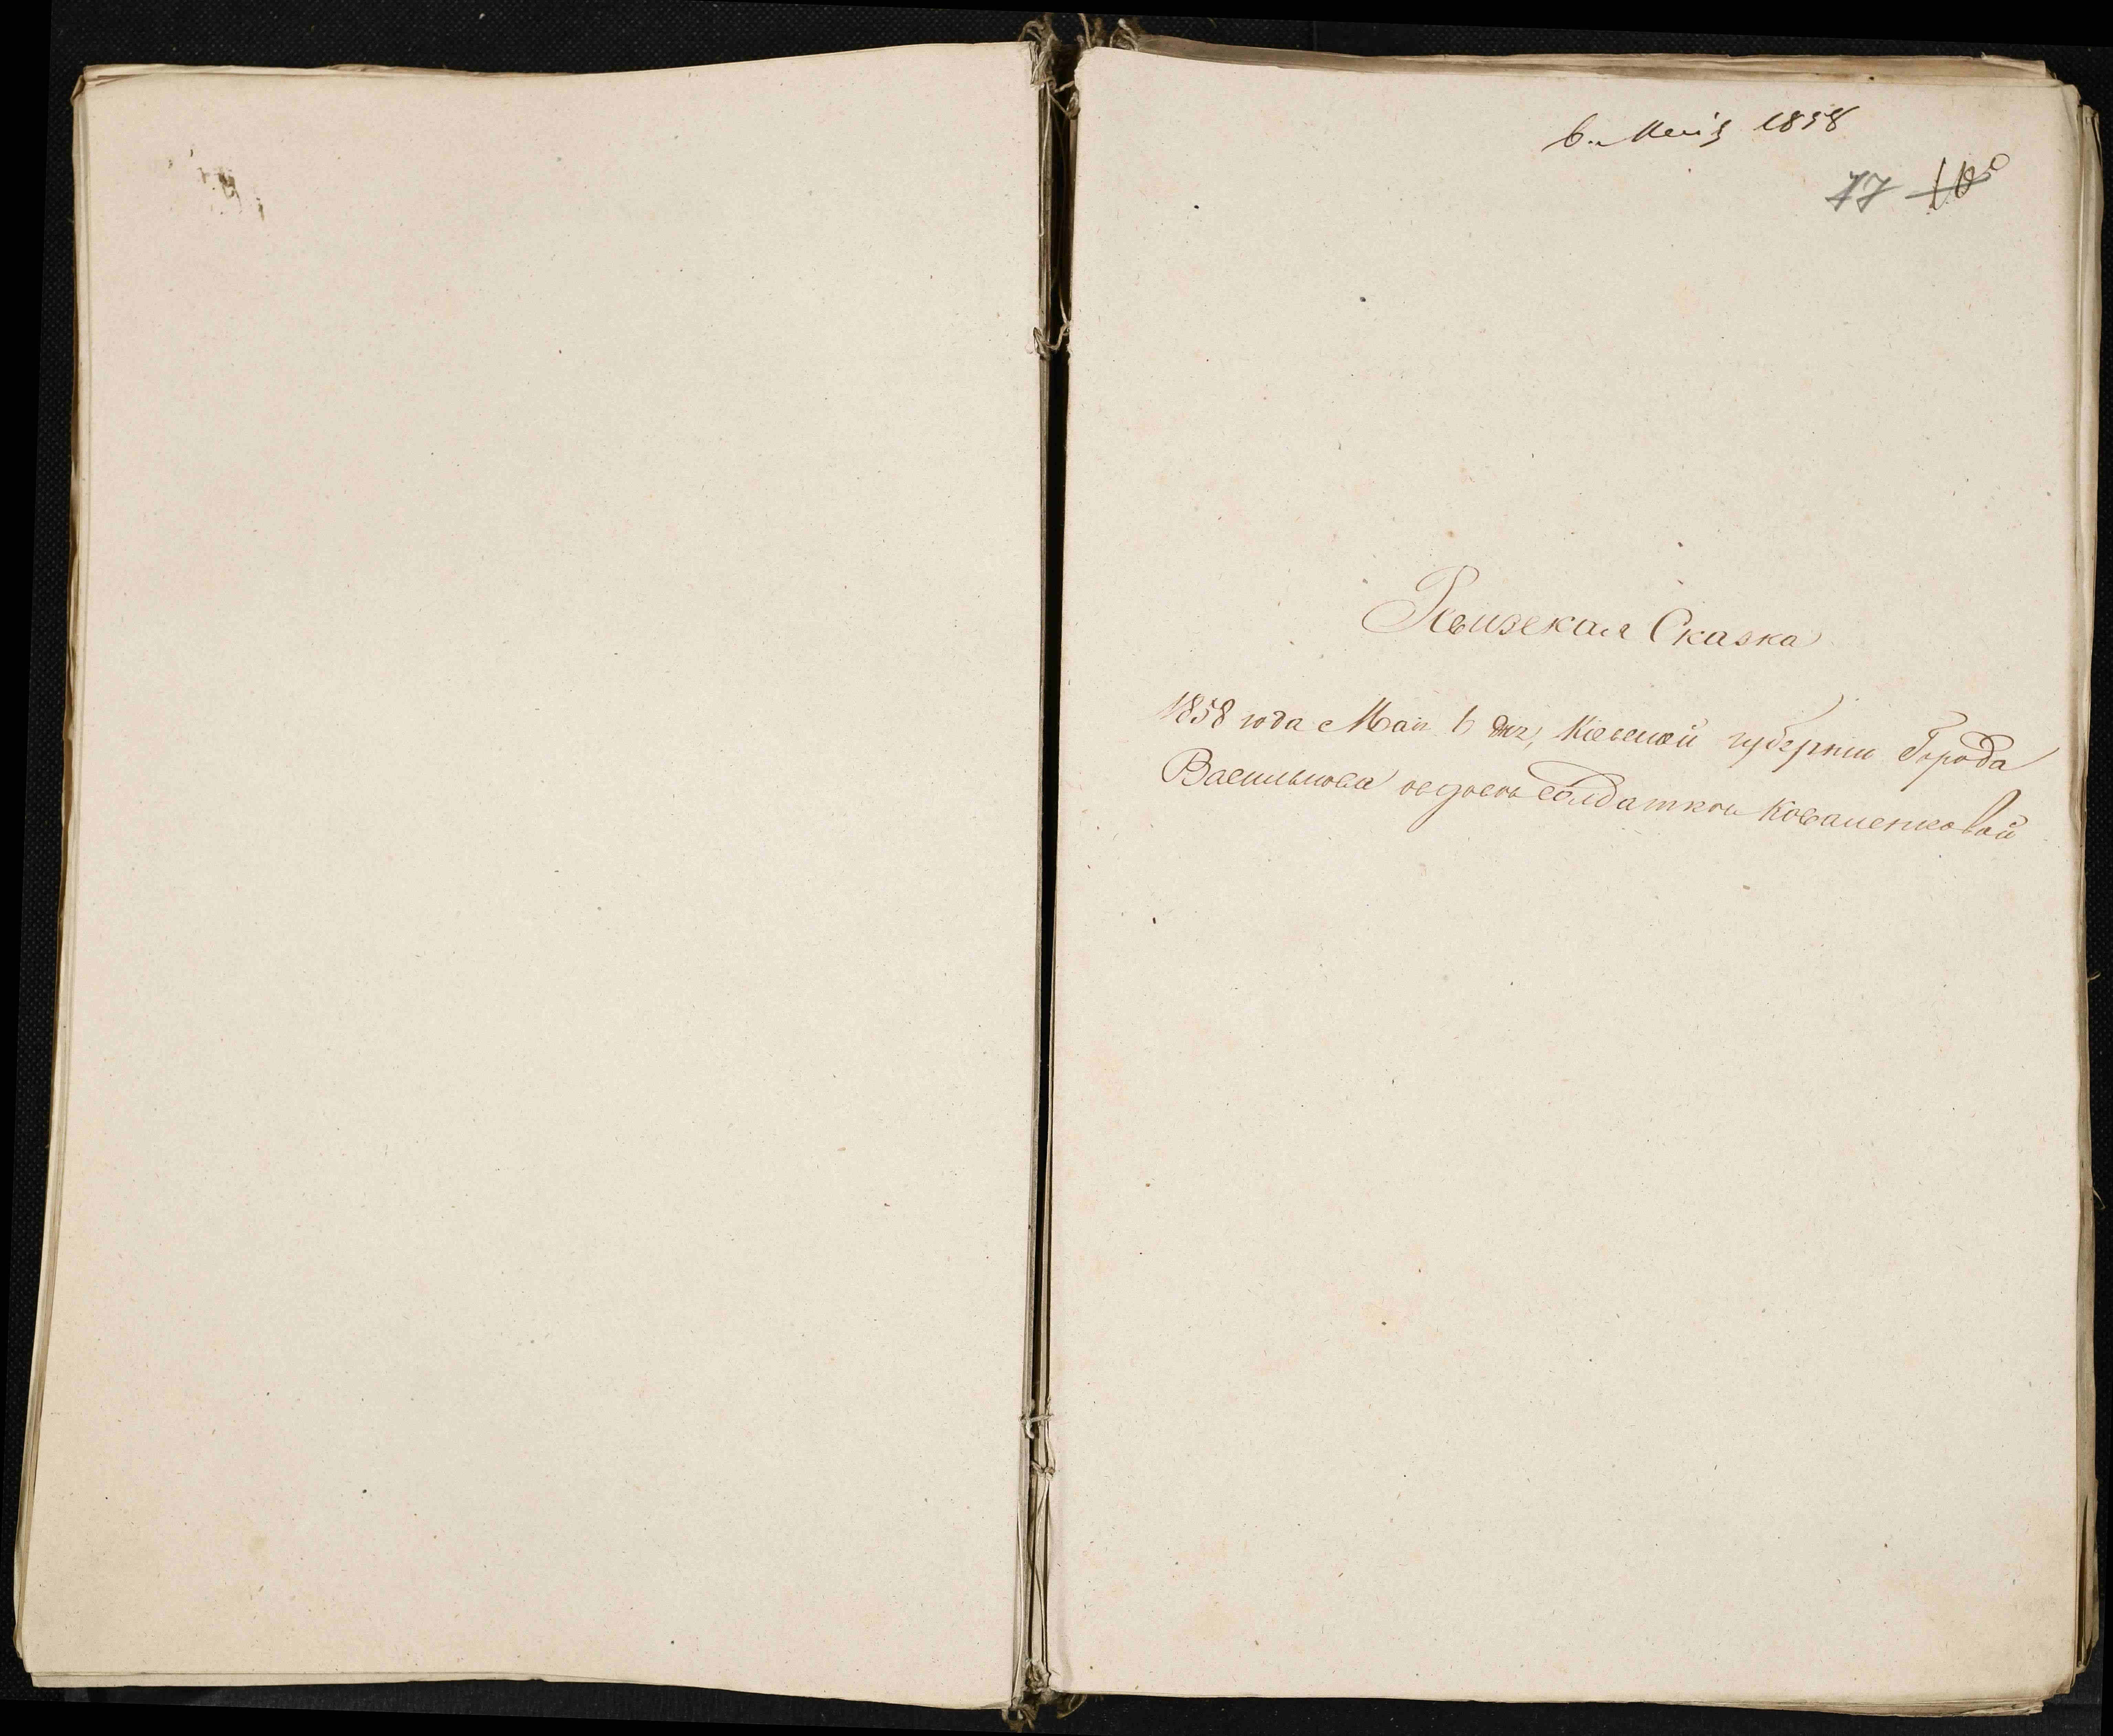 6. Мая 1858
77 105
Ревизская Сказка
1858 года Мая 6 дня, Киевской губернии Города
Василькова вдовой солдаткой Коваленковой